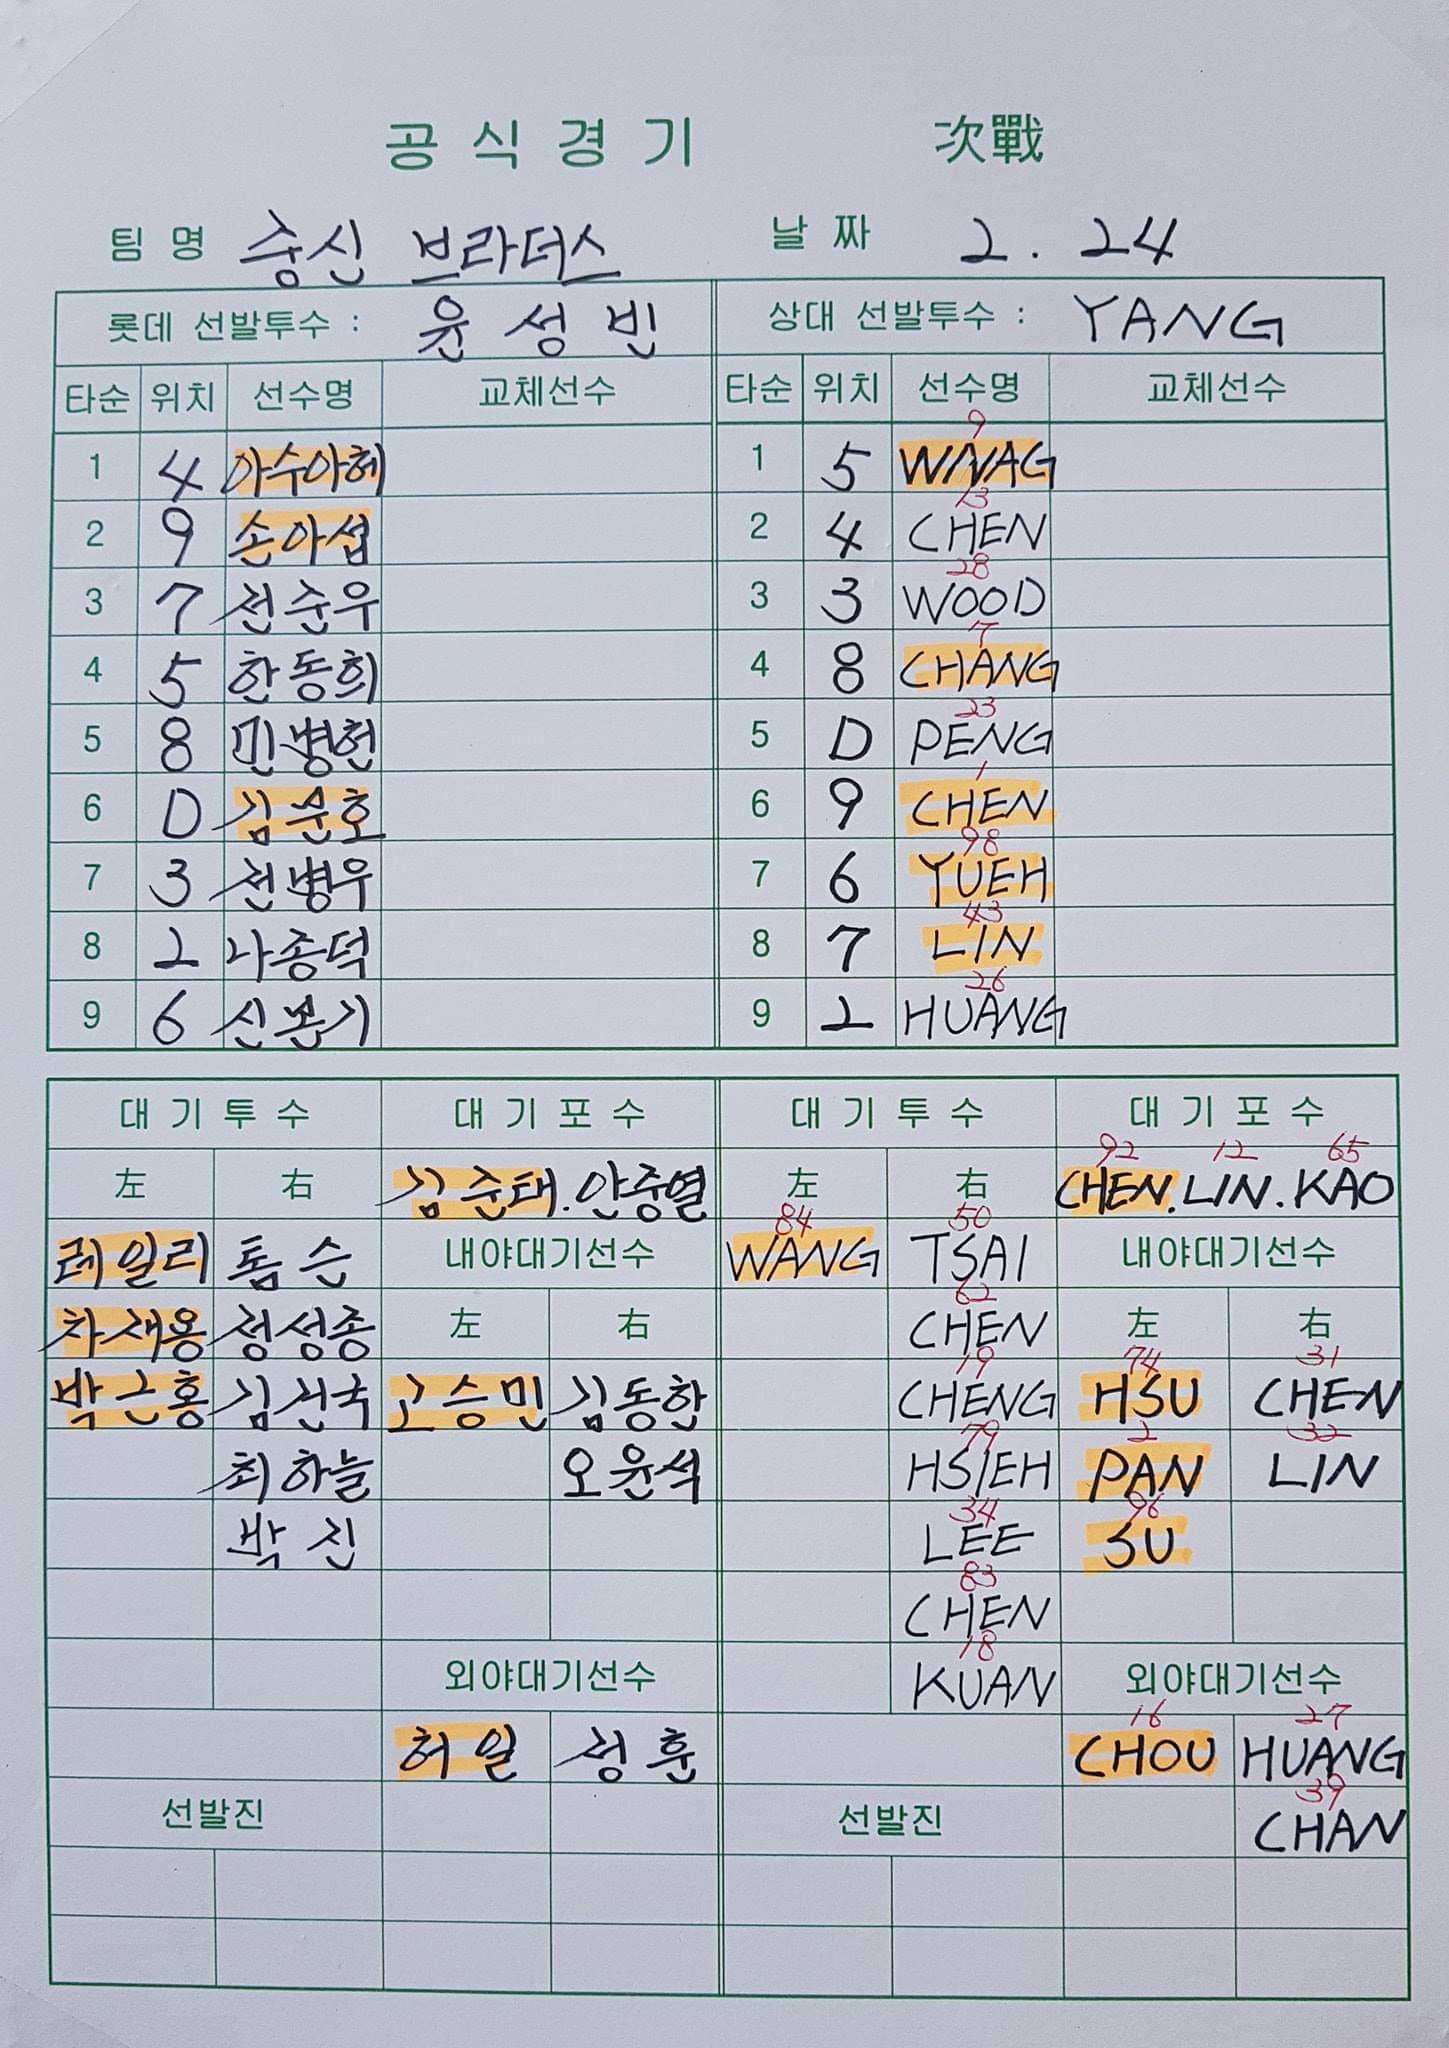 공식경기 次戰
팀명 숭신 브라더스 날짜 2. 24
롯데 선발투수 : 윤성빈 상대 선발투수 : YANG
타순 위치 선수명 교체선수 타순 위치 선수명 교체선수
9
1 4 아수아헤 1 5 WNAG
13
2 9 손아섭 2 4 CHEN
28
3 7 전준우 3 3 WOOD
17
4 5 한동희 4 8 CHANG
23
5 8 민병헌 5 D PENG
1
6 D 김문호 6 9 CHEN
98
7 3 전병우 7 6 YUEH
43
8 2 나종덕 8 7 LIN
26
9 6 신본기 9 2 HUANG
대기투수 대기포수 대기투수 대기포수
92 12 65
左 右 김준태. 안중열 左 右 CHEN. LIN. KAO
84 50
레일리 톰슨 내야대기선수 WANG TSAI 내야대기선수
62
차재용 정성종 左 右 CHEN 左 右
19 74 31
박근홍 김건국 고승민 김동한 CHENG HSU CHEN
79 2 32
최하늘 오윤석 HSIEH PAN LIN
34 96
박진 LEE SU
83
CHEN
18
외야대기선수 KUAN 외야대기선수
16 27
허일 정훈 CHOU HUANG
39
선발진 선발진 CHAN